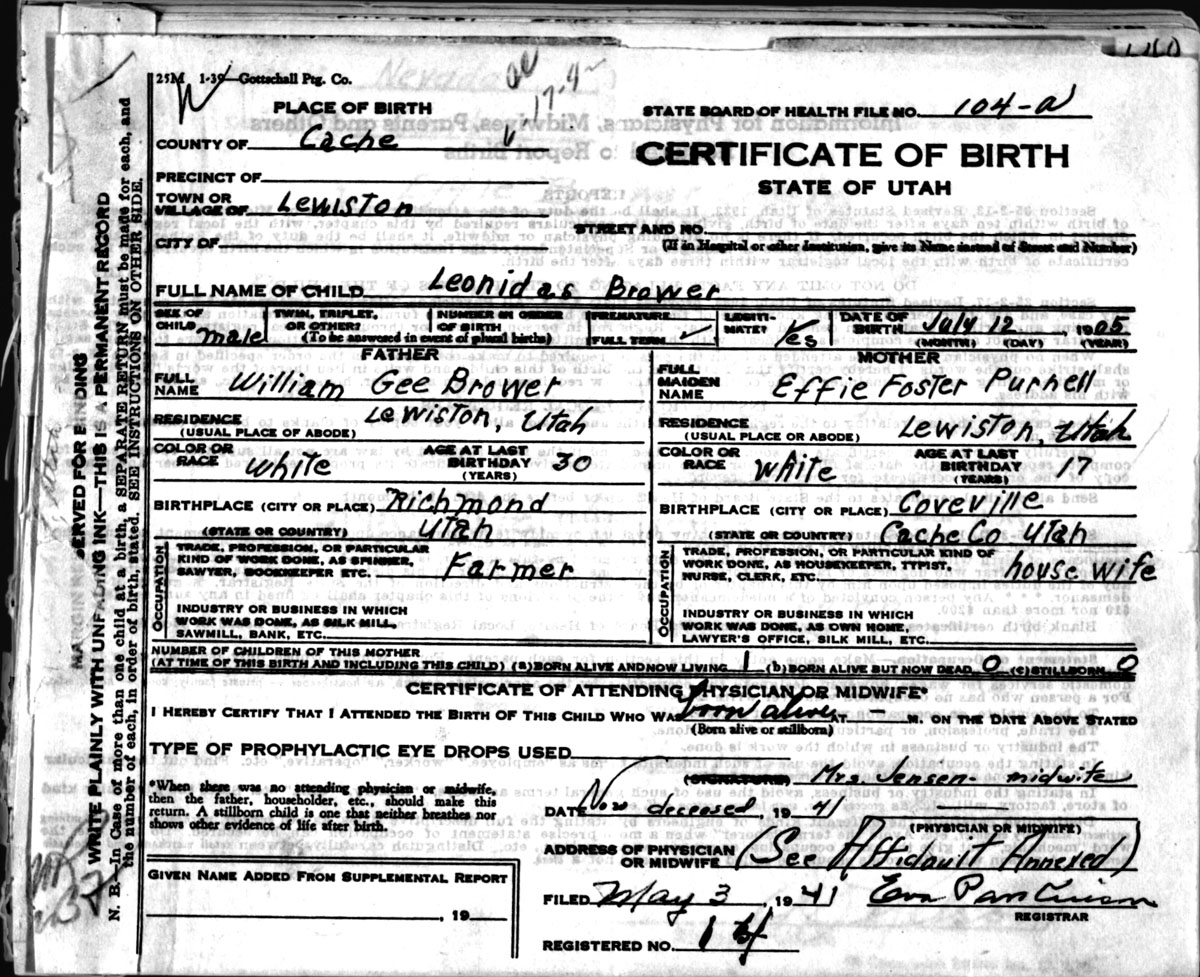 25M 1-39—Gottschall Ptg. Co.
STATE BOARD OF HEALTH FILE NO. 104-a
PLACE OF BIRTH
COUNTY OF Cache
CERTIFICATE OF BIRTH
PRECINCT OF
STATE OF UTAH
TOWN OR
VILLAGE OF Lewiston
STREET AND NO.
CITY OF
(If in Hospital or other Institution, give its Name instead of Street and Number)
FULL NAME OF CHILD Leonidas Brower
SEX OF CHILD male
TWIN, TRIPLET, OR OTHER?
NUMBER IN ORDER OF BIRTH
(To be answered in event of plural births)
PREMATURE
FULL TERM ✓
LEGITIMATE? Yes
DATE OF BIRTH July 12 1905
(MONTH) (DAY) (YEAR)
FATHER
FULL NAME William Gee Brower
RESIDENCE Lewiston, Utah
(USUAL PLACE OF ABODE)
COLOR OR RACE white
AGE AT LAST BIRTHDAY 30
(YEARS)
BIRTHPLACE (CITY OR PLACE) Richmond
(STATE OR COUNTRY) Utah
OCCUPATION
TRADE, PROFESSION, OR PARTICULAR
KIND OF WORK DONE, AS SPINNER,
SAWYER, BOOKKEEPER ETC. Farmer
INDUSTRY OR BUSINESS IN WHICH
WORK WAS DONE, AS SILK MILL,
SAWMILL, BANK, ETC.
MOTHER
FULL MAIDEN NAME Effie Foster Purnell
RESIDENCE Lewiston, Utah
(USUAL PLACE OR ABODE)
COLOR OR RACE White
AGE AT LAST BIRTHDAY 17
(YEARS)
BIRTHPLACE (CITY OR PLACE) Coveville
(STATE OR COUNTRY) Cache Co Utah
OCCUPATION
TRADE, PROFESSION, OR PARTICULAR KIND OF
WORK DONE, AS HOUSEKEEPER, TYPIST,
NURSE, CLERK, ETC. house wife
INDUSTRY OR BUSINESS IN WHICH
WORK WAS DONE, AS OWN HOME,
LAWYER'S OFFICE, SILK MILL, ETC.
NUMBER OF CHILDREN OF THIS MOTHER
(AT TIME OF THIS BIRTH AND INCLUDING THIS CHILD) (a) BORN ALIVE AND NOW LIVING 1 (b) BORN ALIVE BUT NOW DEAD 0 (c) STILLBORN 0
CERTIFICATE OF ATTENDING PHYSICIAN OR MIDWIFE*
I HEREBY CERTIFY THAT I ATTENDED THE BIRTH OF THIS CHILD WHO WAS born alive AT — M. ON THE DATE ABOVE STATED
(Born alive or stillborn)
TYPE OF PROPHYLACTIC EYE DROPS USED
(SIGNATURE) Mrs Jensen - midwife
*When there was no attending physician or midwife,
then the father, householder, etc., should make this
return. A stillborn child is one that neither breathes nor
shows other evidence of life after birth.
DATE Now decesed 1941
(PHYSICIAN OR MIDWIFE)
ADDRESS OF PHYSICIAN
OR MIDWIFE (See Affidavit Annexed)
GIVEN NAME ADDED FROM SUPPLEMENTAL REPORT
, 19
FILED May 3, 1941 Eva
REGISTRAR
REGISTERED NO.
WRITE PLAINLY WITH UNFADING INK—THIS IS A PERMANENT RECORD
N. B.—In Case of more than one child at a birth, a SEPARATE RETURN must be made for each, and
the number of each, in order of birth, stated. SEE INSTRUCTIONS ON OTHER SIDE.